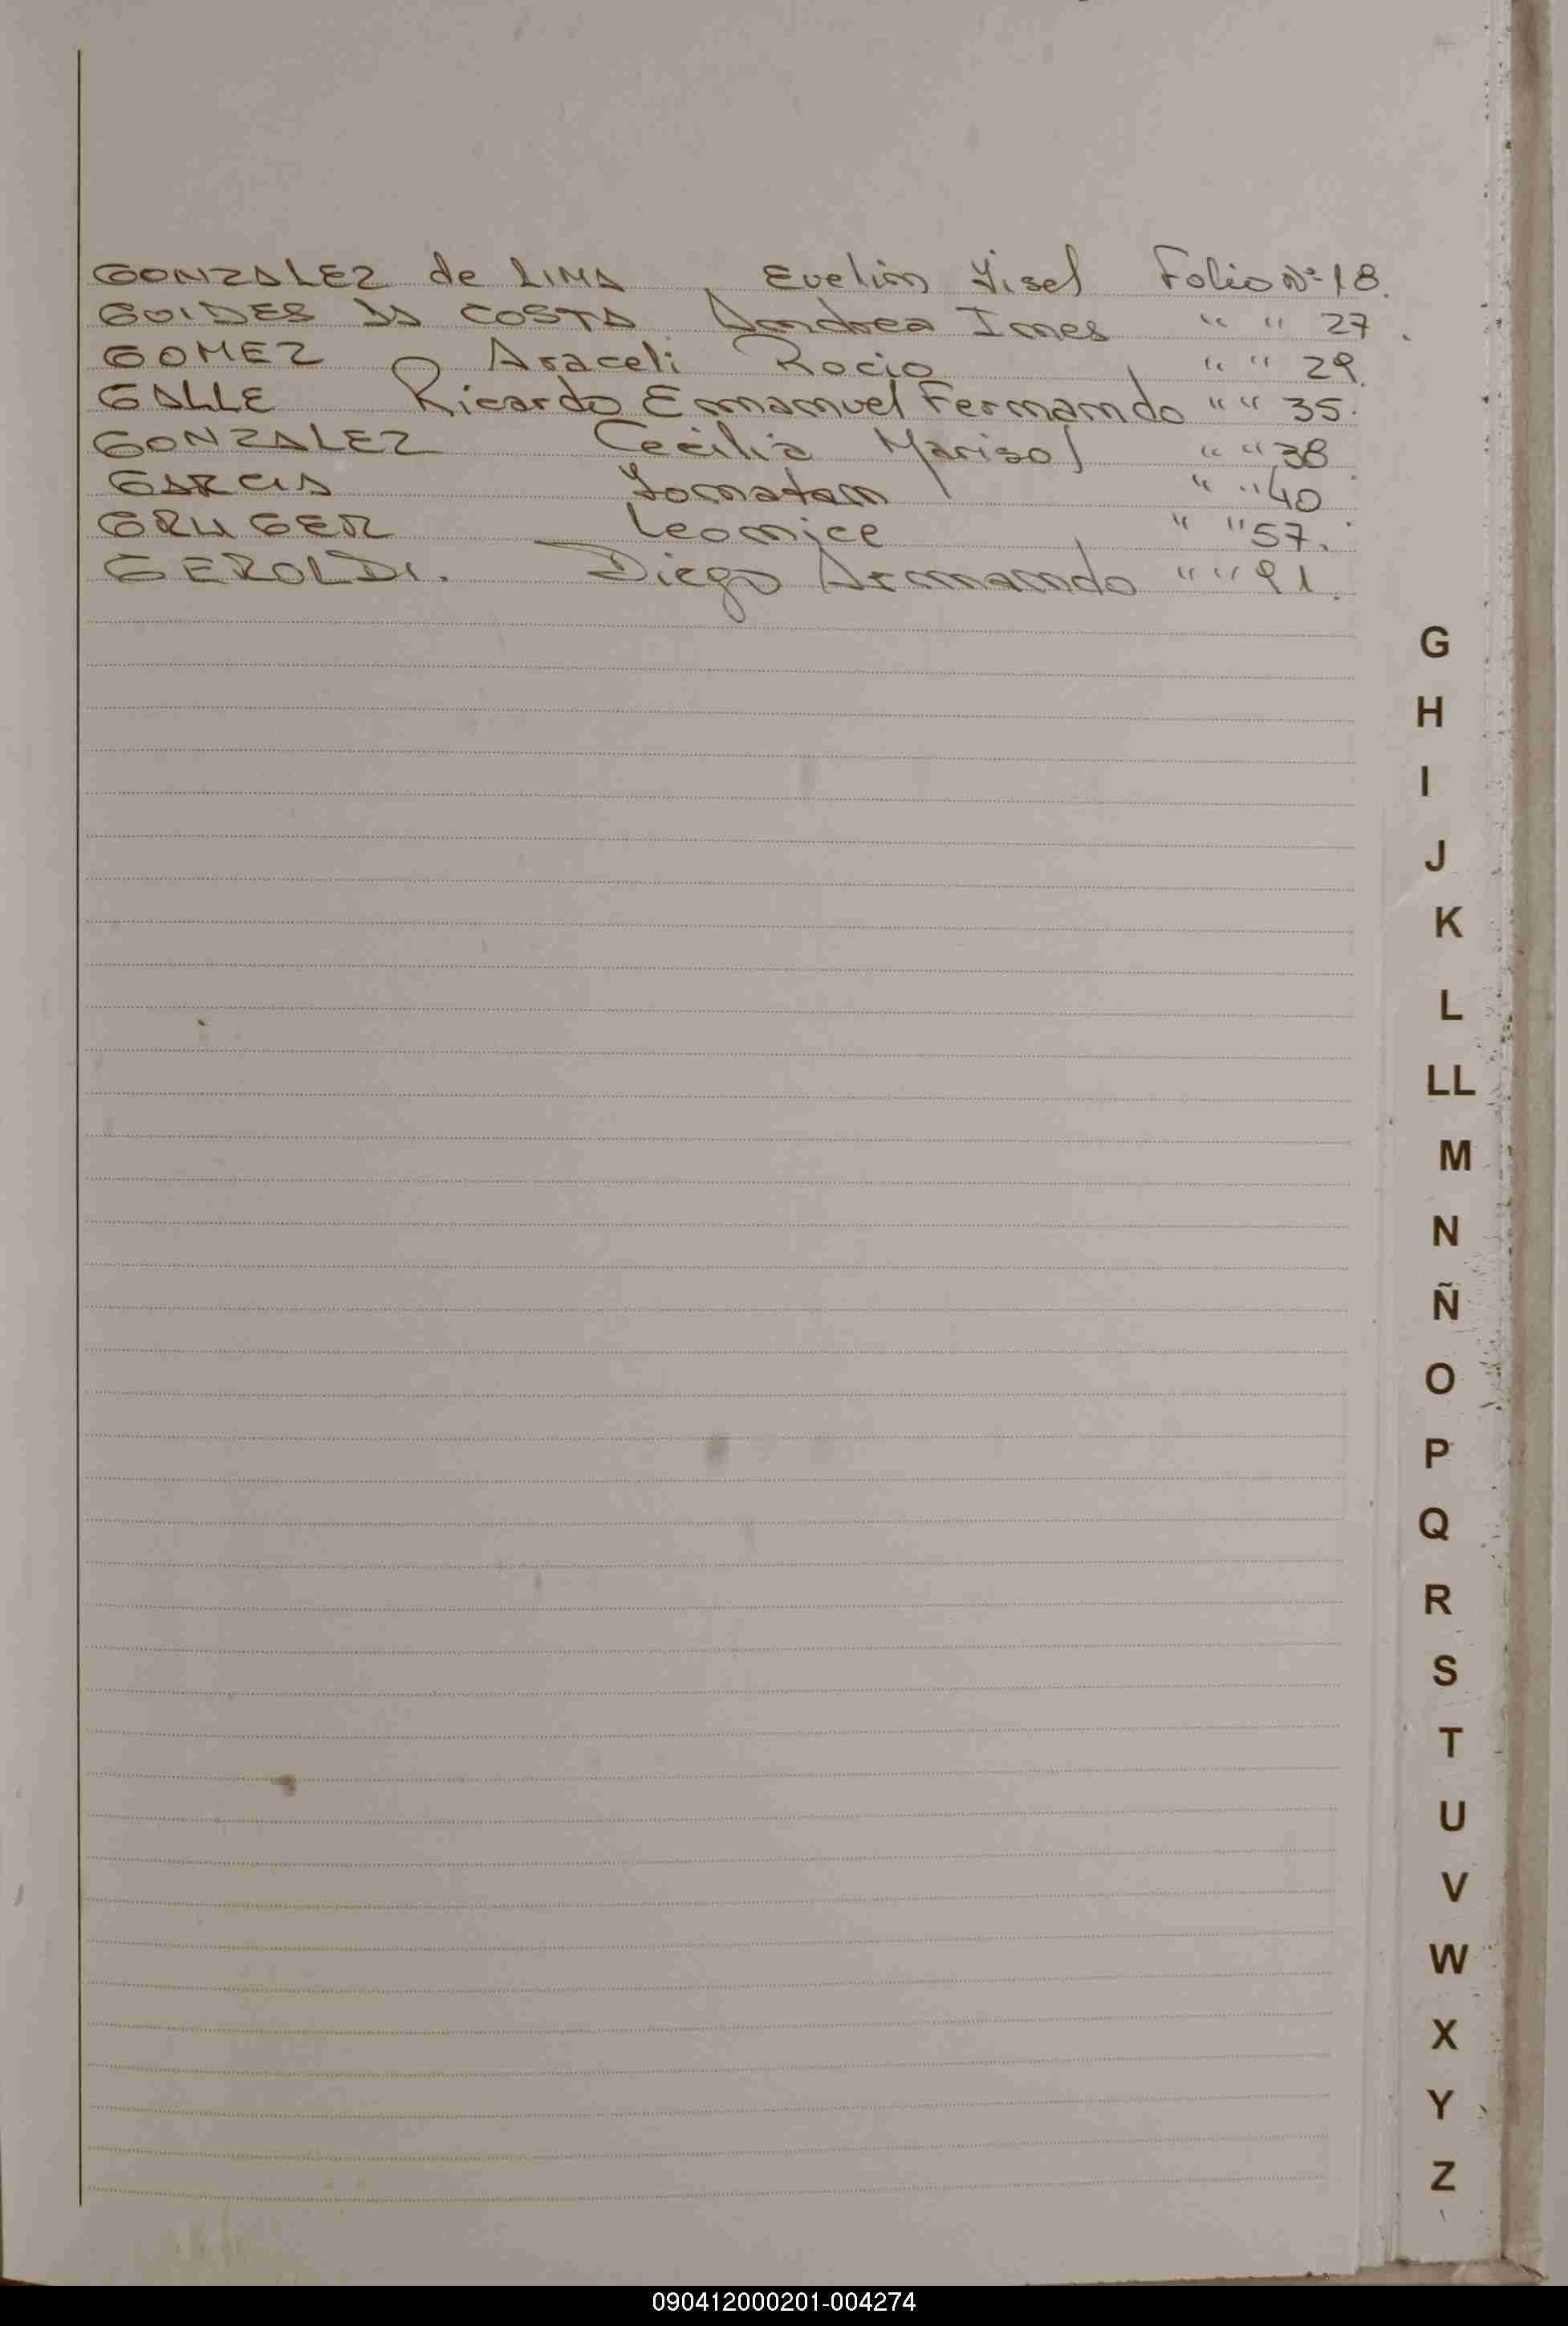 GONZALEZ de LIMA Evelin Yisel Folio Nº 18.
GUIDES DA COSTA Andrea Ines " " 27.
GOMEZ Araceli Rocio " " 29.
GALLE Ricardo Enmanuel Fernando " " 35.
GONZALEZ Cecilia Marisol " " 38.
GARCIA Yonatan " " 40.
GRUGER Leonice " " 57.
GEROLDI. Diego Armando " " 91.
G
H
I
J
K
L
LL
M
N
Ñ
O
P
Q
R
S
T
U
V
W
X
Y
Z
090412000201-004274